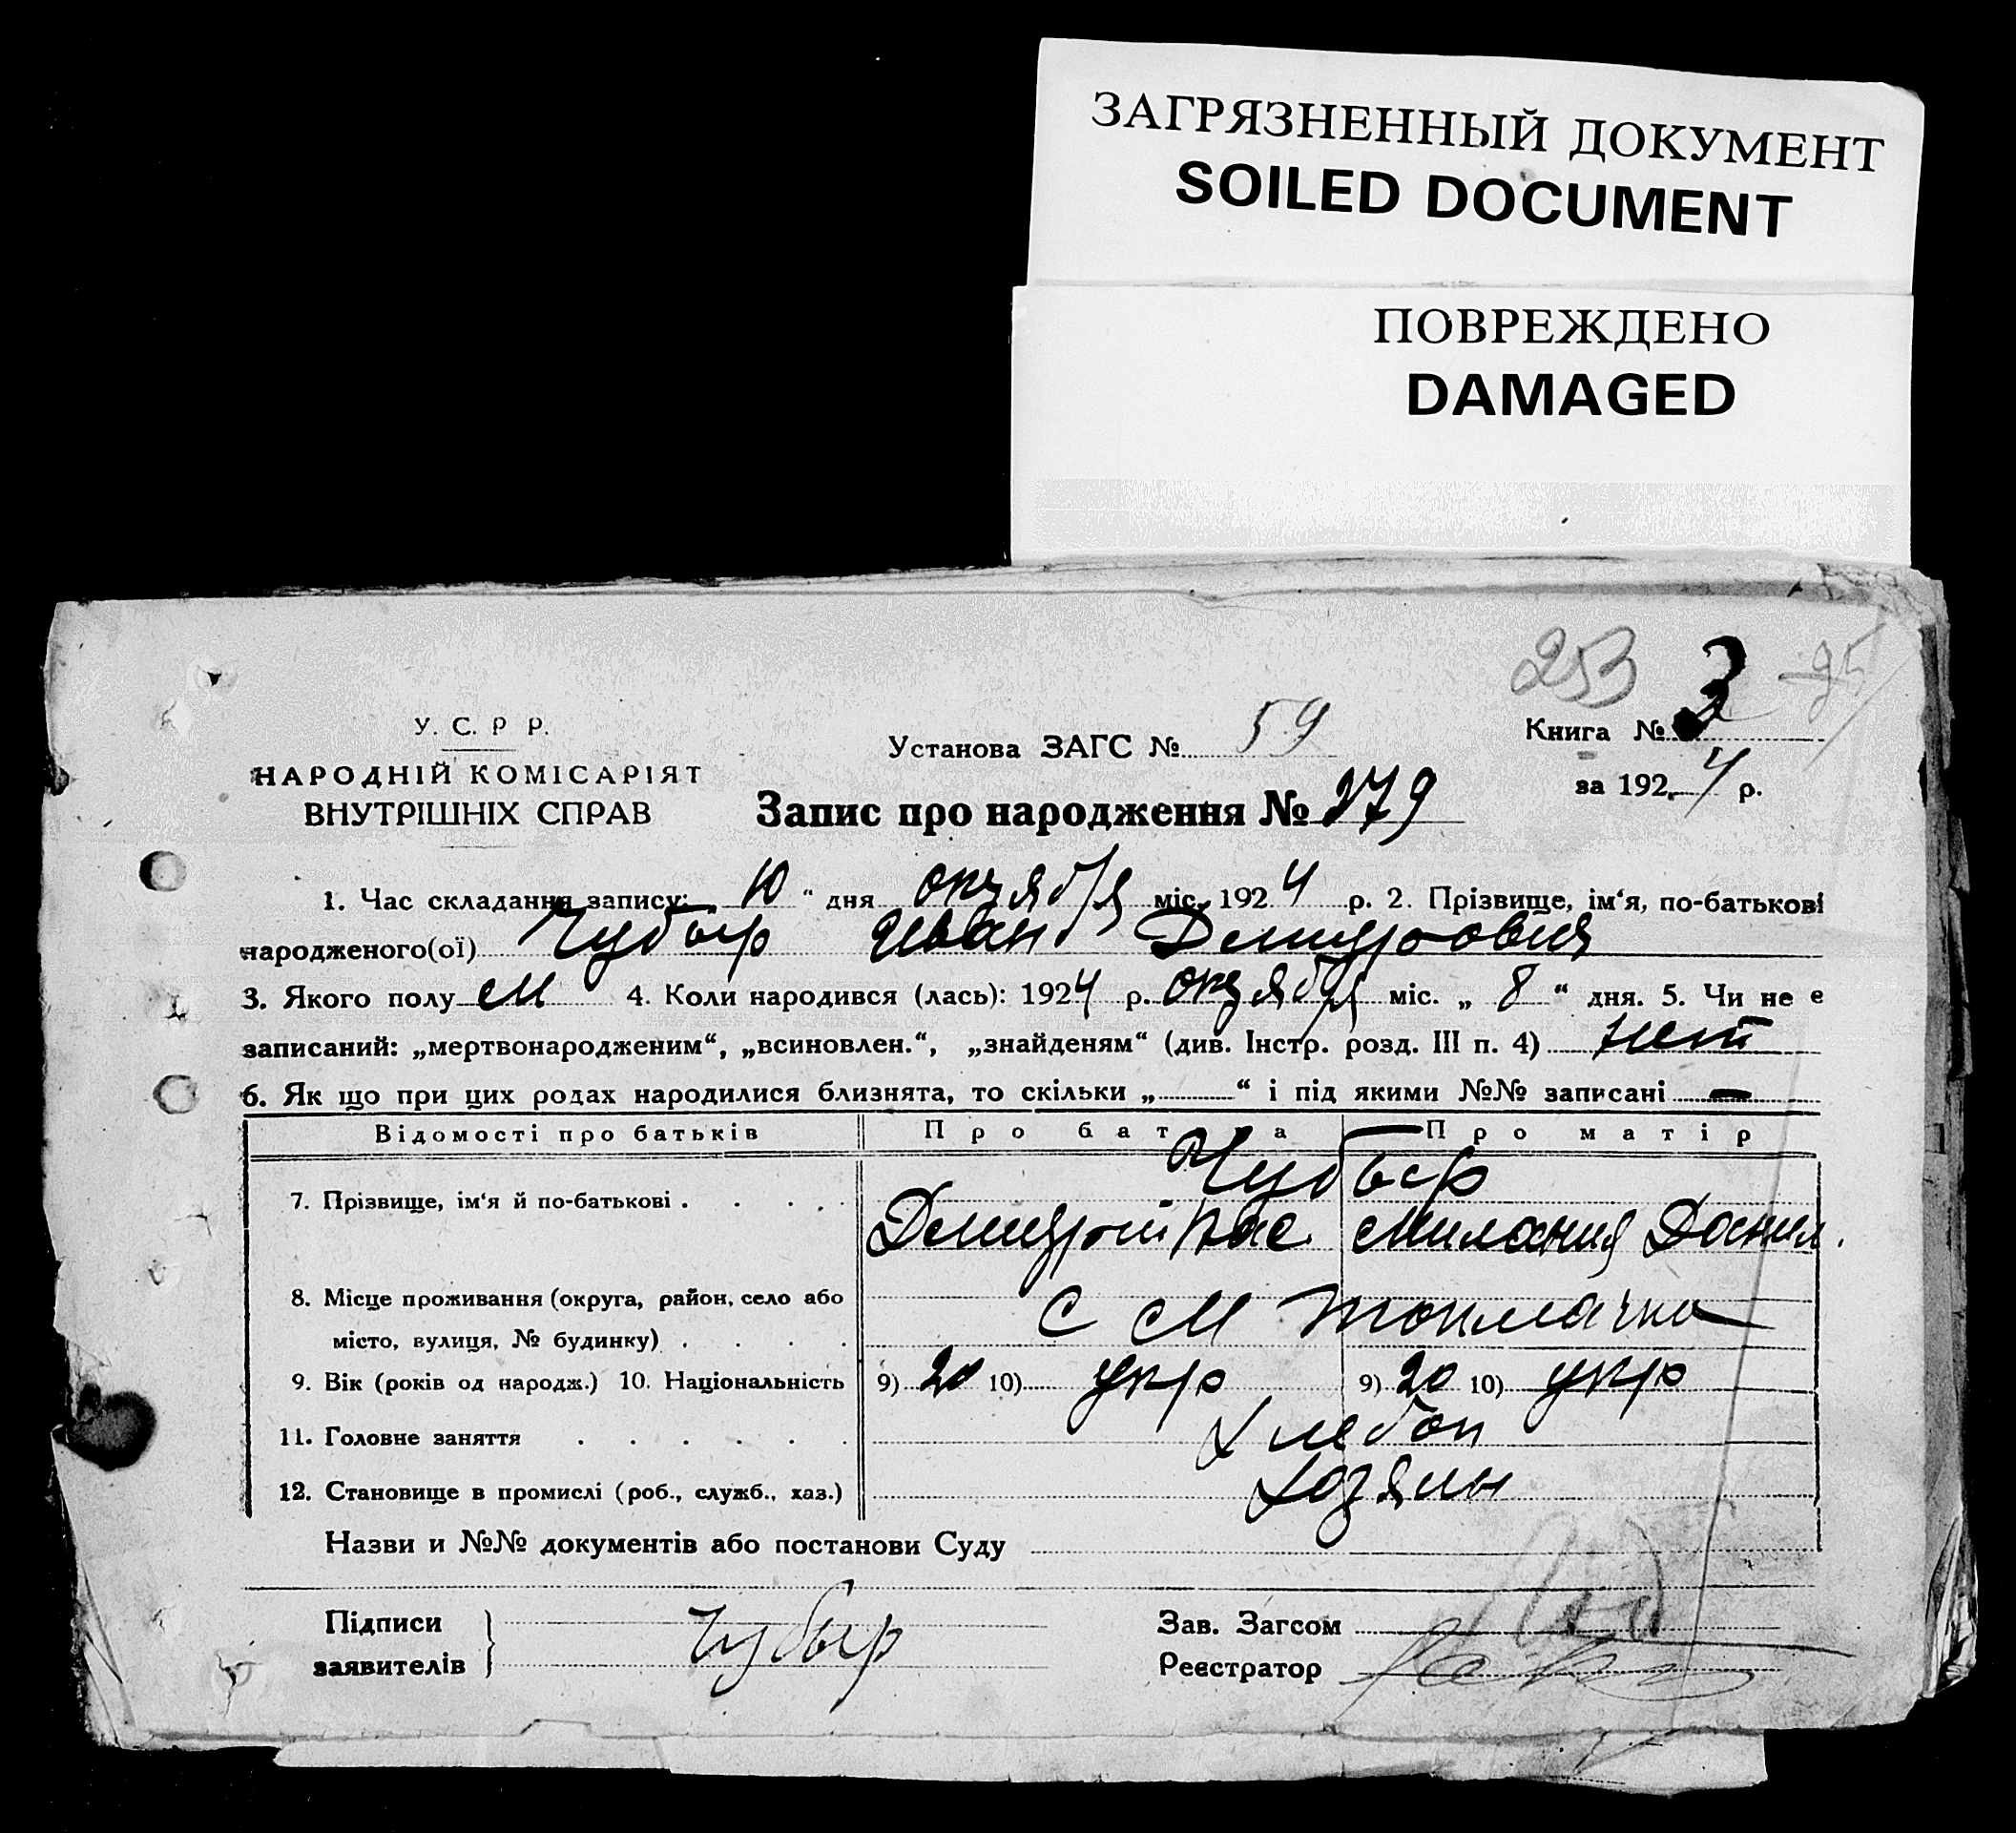 ЗАГРЯЗНЕННЫЙ ДОКУМЕНТ
SOILED DOCUMENT
ПОВРЕЖДЕНО
DAMAGED
253 3 95
У. С. Р Р.
НАРОДНІЙ КОМІСАРІЯТ
ВНУТРІШНІХ СПРАВ
Установа ЗАГС № 59
Книга № 2
за 1924 р.
Запис про народження № 279
1. Час складання запису: 10 “ дня октября міс. 1924 р. 2. Прізвище, ім‘я, по-батькові
народженого(ої) Чубыр Иван Демитрович
3. Якого полу М 4. Коли народився (лась): 1924 р. октября міс. „ 8 “ дня. 5. Чи не є
записаний: „мертвонародженим“, „всиновлен.“, „знайденям“ (див. Інстр. розд. III п. 4) нет
6. Як що при цих родах народилися близнята, то скільки „ “ і під якими №№ записані —
Відомості про батьків Про батька Про матір
Чубыр
7. Прізвище, ім‘я й по-батькові Демитрий Вас. Милания Данил.
8. Місце проживання (округа, район, село або
місто, вулиця, № будинку) С М Токмачка
9. Вік (років од народж.) 10. Національність 9) 20 10) укр 9) 20 10) укр
11. Головне заняття хлебоп
12. Становище в промислі (роб., служб., хаз.) хозяин
Назви и №№ документів або постанови Суду
Підписи
заявителів Чубыр
Зав. Загсом
Реєстратор